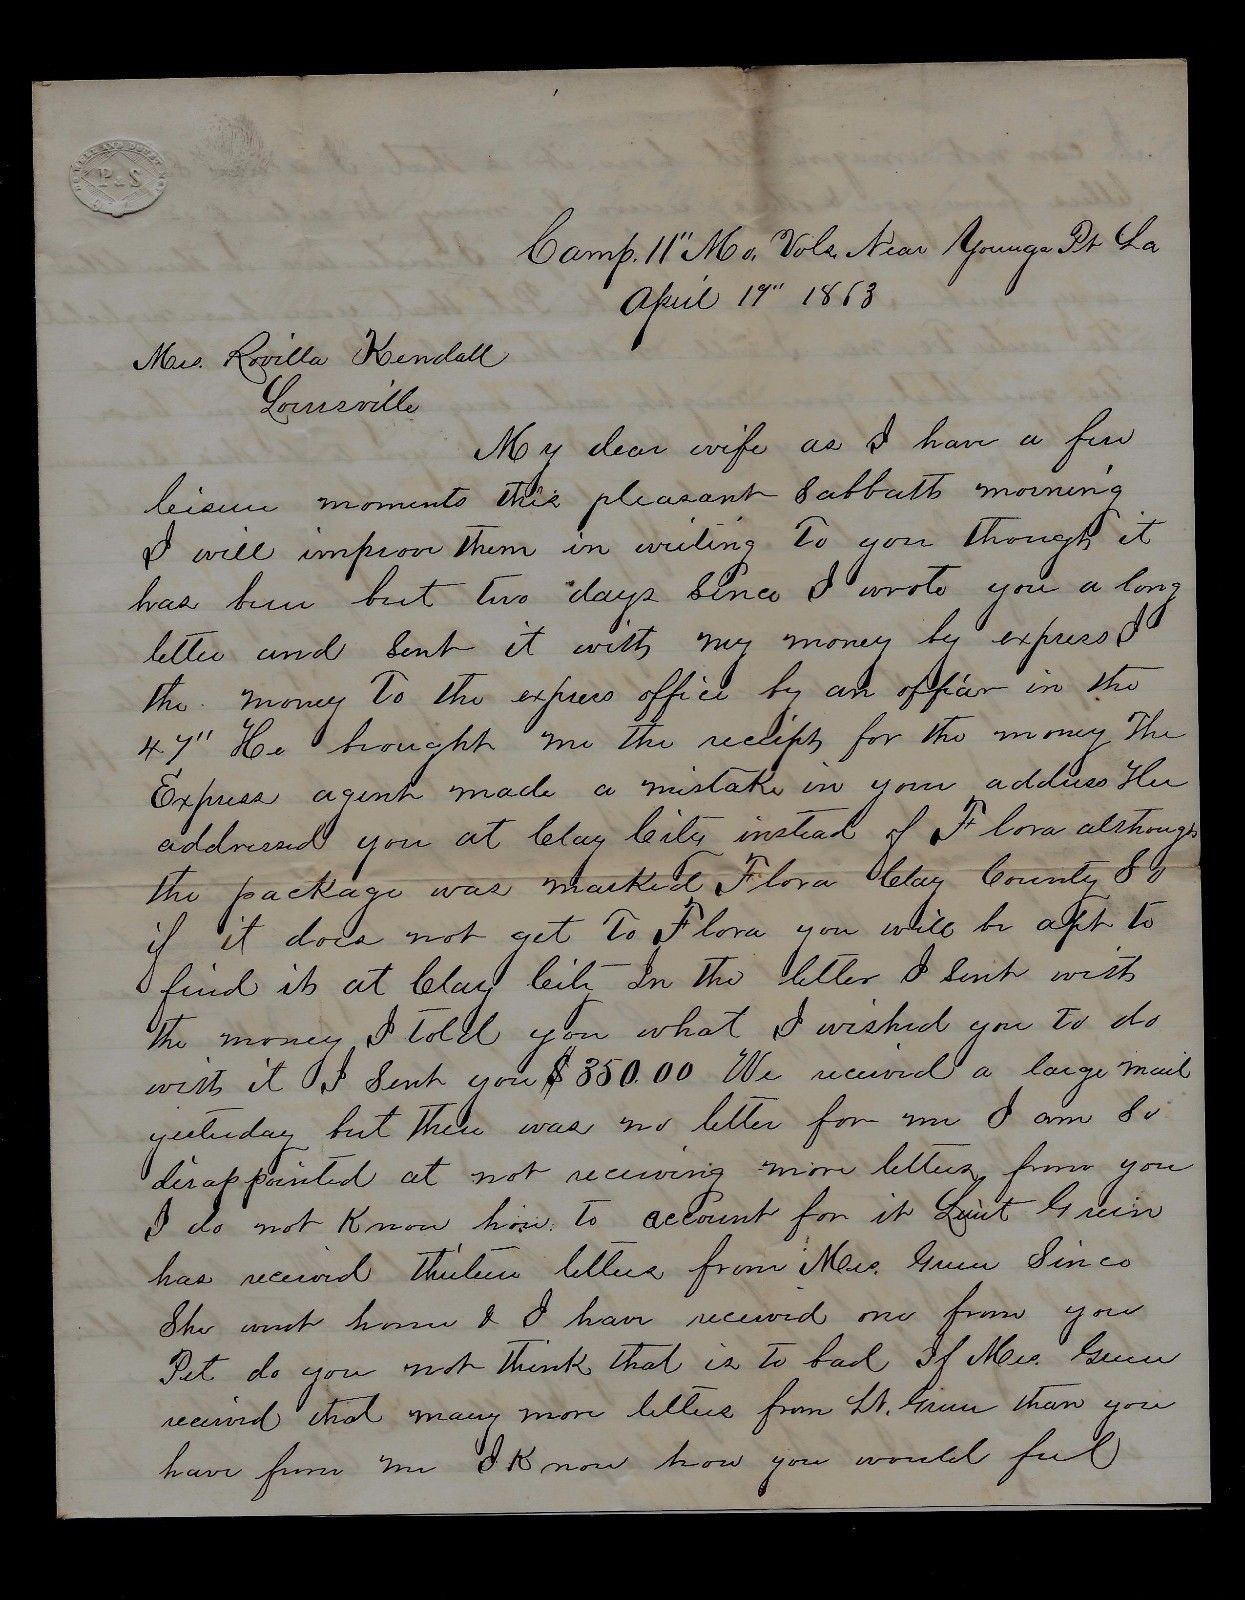 P & S
Camp. 11" Mo. Vols. Near Youngs Pt La
April 19" 1863
Mrs. Rovilla Kendall
Louisville
My dear wife as I have a few
leisure moments this pleasant Sabbath morning
I will improve them in writing to you though it
has been but two days since I wrote you a long
letter and sent it with my money by express I
the money to the express office by an officer in the
47" He brought me the receipt for the money The
Express agent made a mistake in your address Her
addressed you at Clay City instead of Flora although
the package was marked Flora Clay County So
if it does not get to Flora you will be apt to
find it at Clay City In the letter I sent with
the money I told you what I wished you to do
with it I sent you $350.00 We received a large mail
yesterday but there was no letter for me I am so
disappointed at not receiving more letters from you
I do not know how to account for it Lieut Green
has received thirteen letters from Mrs. Green since
She went home & I have received one from you
Pet do you not think that is to bad If Mrs. Green
received that many more letters from Lt. Green than you
have from me I know how you would feel